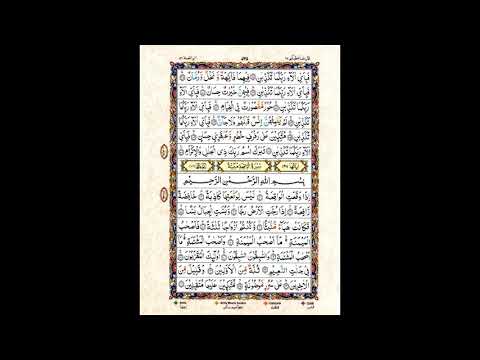 فَبِاَيِّ اٰلَآءِ رَبِّكُمَا تُكَذِّبٰنِ ۝ فِيْهِمَا فَاكِهَةٌ وَّ نَخْلٌ وَّ رُمَّانٌ ۝
فَبِاَيِّ اٰلَآءِ رَبِّكُمَا تُكَذِّبٰنِ ۝ فِيْهِنَّ خَيْرٰتٌ حِسَانٌ ۝ فَبِاَيِّ
اٰلَآءِ رَبِّكُمَا تُكَذِّبٰنِ ۝ حُوْرٌ مَّقْصُوْرٰتٌ فِى الْخِيَامِ ۝ فَبِاَيِّ اٰلَآءِ رَبِّكُمَا
تُكَذِّبٰنِ ۝ لَمْ يَطْمِثْهُنَّ اِنْسٌ قَبْلَهُمْ وَلَا جَآنٌّ ۝ فَبِاَيِّ اٰلَآءِ رَبِّكُمَا
تُكَذِّبٰنِ ۝ مُتَّكِـِٕيْنَ عَلٰى رَفْرَفٍ خُضْرٍ وَّ عَبْقَرِىٍّ حِسَانٍ ۝ فَبِاَيِّ
اٰلَآءِ رَبِّكُمَا تُكَذِّبٰنِ ۝ تَبٰرَكَ اسْمُ رَبِّكَ ذِى الْجَلٰلِ وَ الْاِكْرَامِ ۝
سُوْرَةُ الْوَاقِعَةِ مَكِّيَّةٌ
بِسْمِ اللّٰهِ الرَّحْمٰنِ الرَّحِيْمِ
اِذَا وَقَعَتِ الْوَاقِعَةُ ۝ لَيْسَ لِوَقْعَتِهَا كَاذِبَةٌ ۝ خَافِضَةٌ
رَّافِعَةٌ ۝ اِذَا رُجَّتِ الْاَرْضُ رَجًّا ۝ وَّ بُسَّتِ الْجِبَالُ بَسًّا ۝
فَكَانَتْ هَبَآءً مُّنْۢبَثًّا ۝ وَّ كُنْتُمْ اَزْوَاجًا ثَلٰثَةً ۝ فَاَصْحٰبُ
الْمَيْمَنَةِ مَآ اَصْحٰبُ الْمَيْمَنَةِ ۝ وَ اَصْحٰبُ الْمَشْـَٔمَةِ مَآ
اَصْحٰبُ الْمَشْـَٔمَةِ ۝ وَ السّٰبِقُوْنَ السّٰبِقُوْنَ ۝ اُولٰٓئِكَ الْمُقَرَّبُوْنَ ۝
فِيْ جَنّٰتِ النَّعِيْمِ ۝ ثُلَّةٌ مِّنَ الْاَوَّلِيْنَ ۝ وَ قَلِيْلٌ مِّنَ
الْاٰخِرِيْنَ ۝ عَلٰى سُرُرٍ مَّوْضُوْنَةٍ ۝ مُّتَّكِـِٕيْنَ عَلَيْهَا مُتَقٰبِلِيْنَ ۝